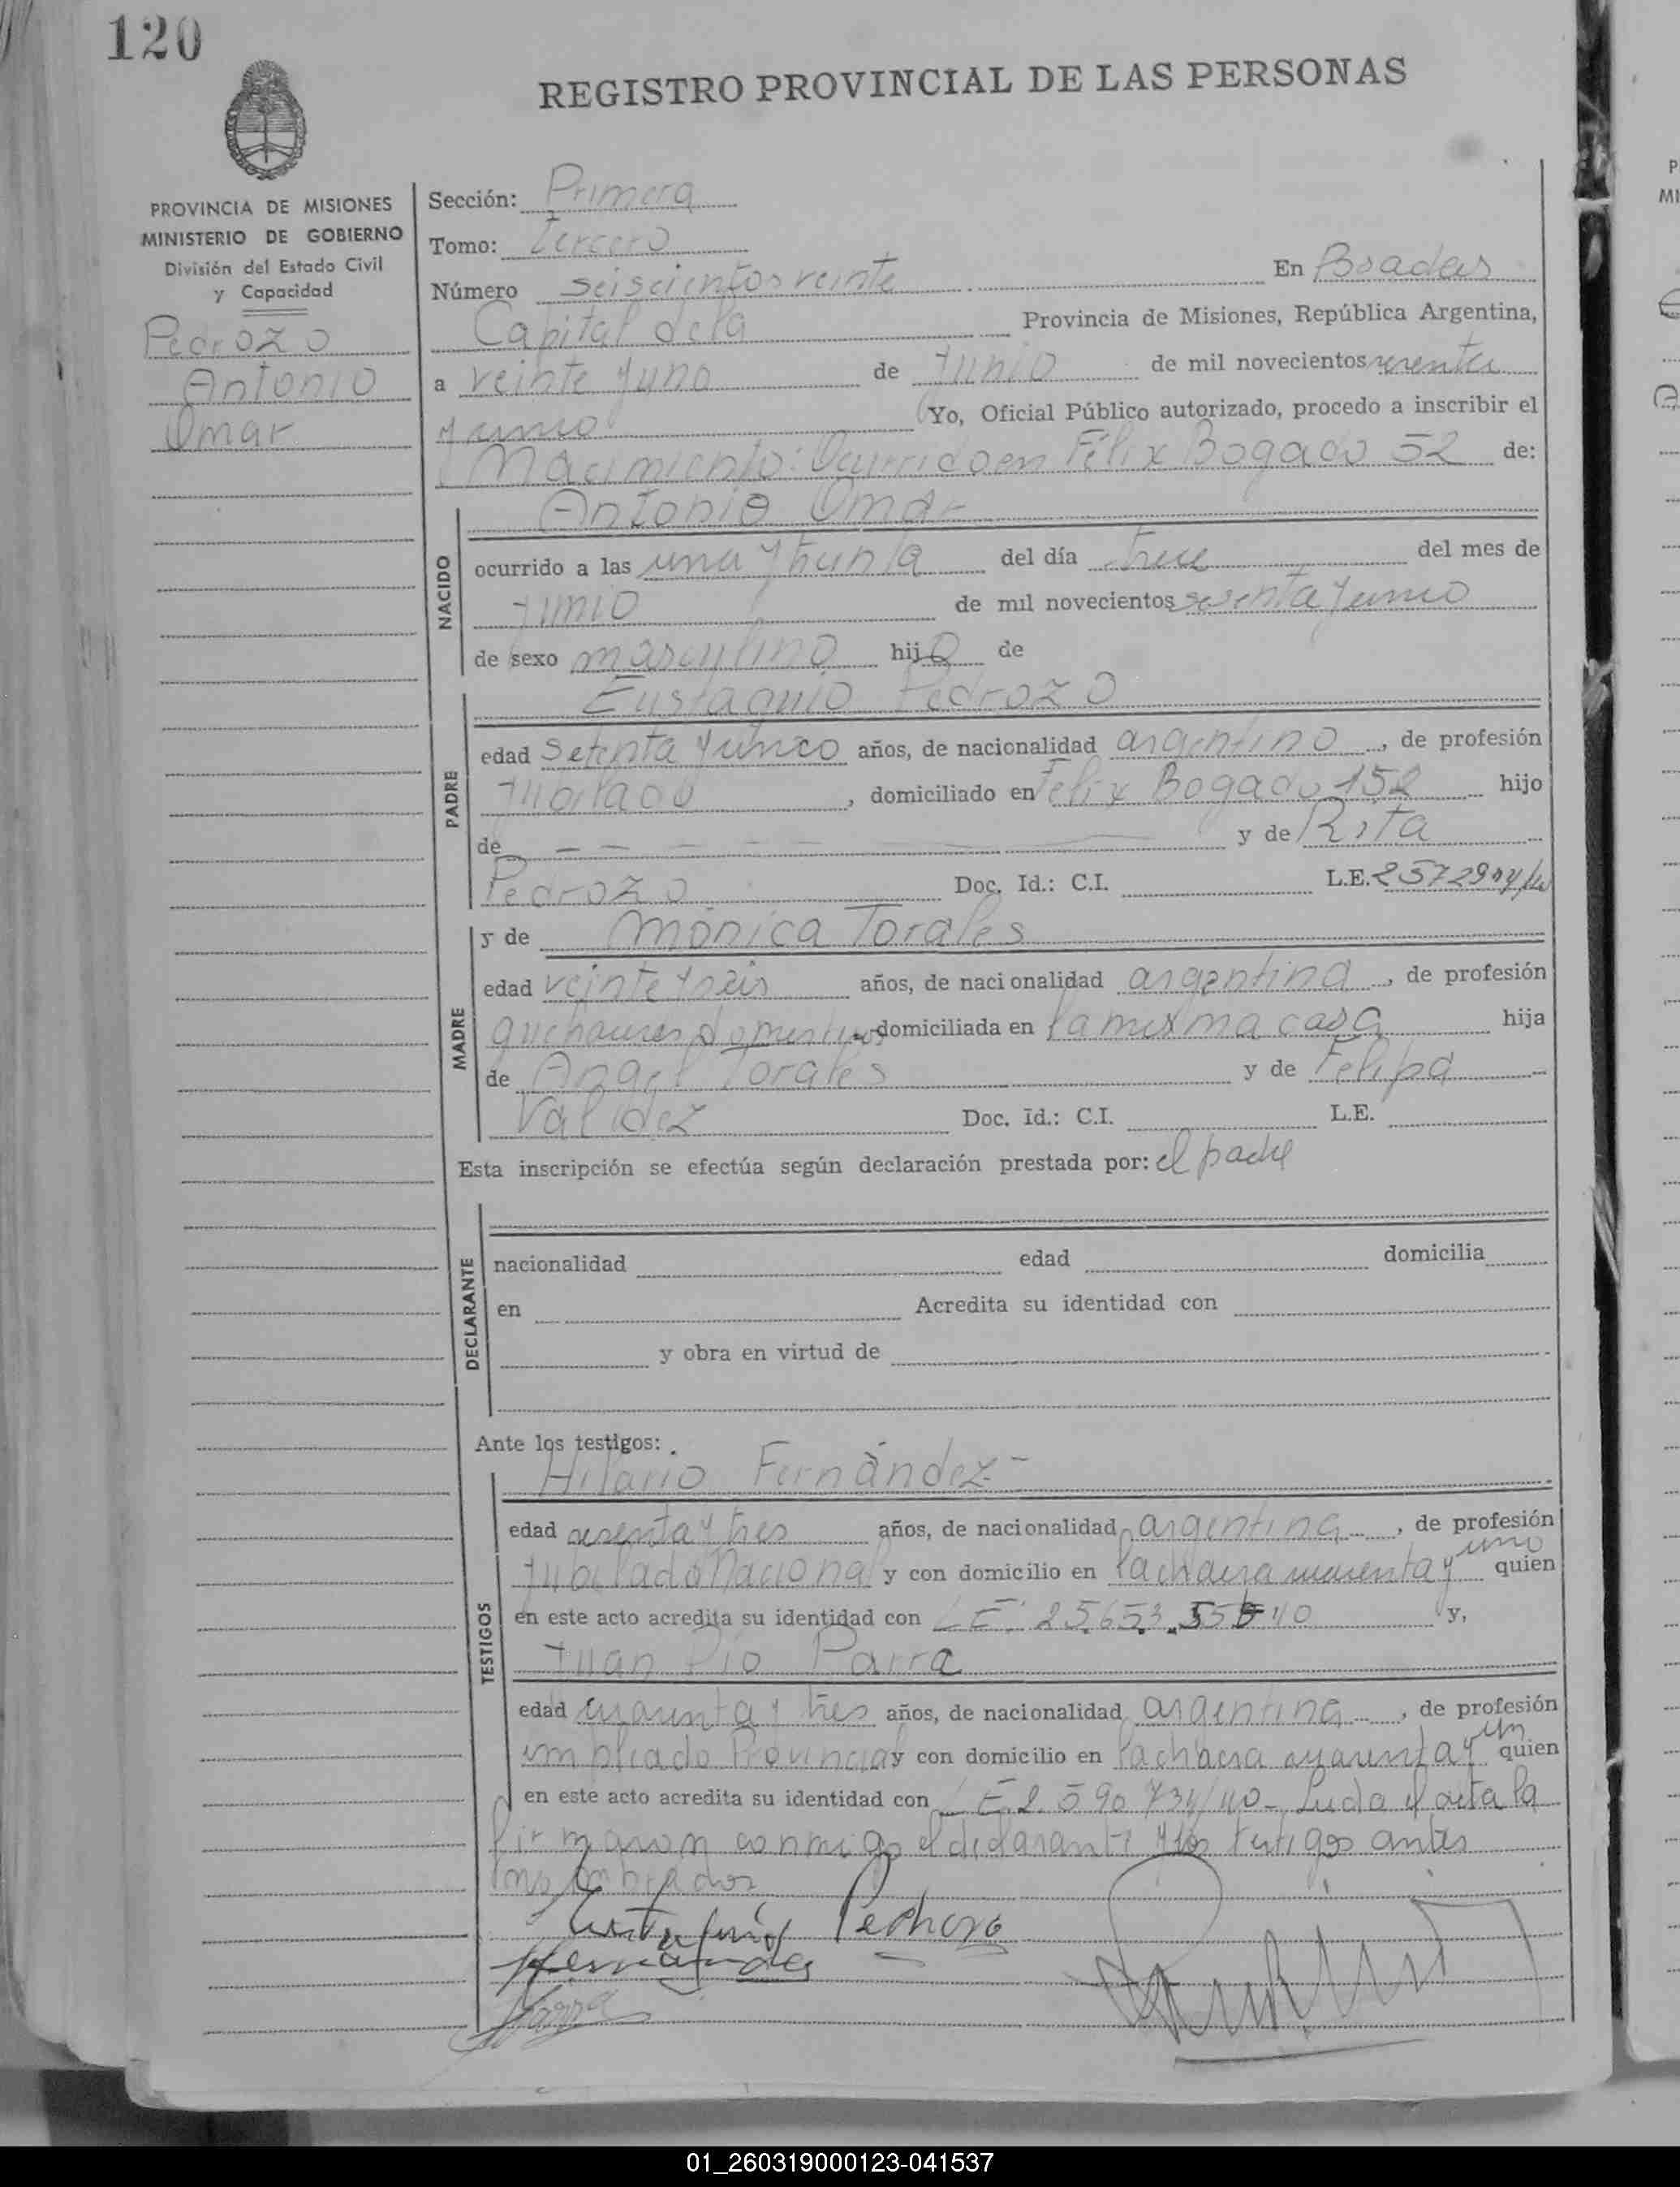 120
REGISTRO PROVINCIAL DE LAS PERSONAS
PROVINCIA DE MISIONES
MINISTERIO DE GOBIERNO
División del Estado Civil
y Capacidad
Pedrozo
Antonio
Omar
Sección: Primera
Tomo: Tercero
Número seiscientos veinte En Posadas
Capital de la Provincia de Misiones, República Argentina,
a veinte y uno de Junio de mil novecientos sesenta
y uno Yo, Oficial Público autorizado, procedo a inscribir el
Nacimiento: Ocurrido en Félix Bogado 52 de:
Antonio Omar
NACIDO
ocurrido a las una y treinta del día trece del mes de
Junio de mil novecientos sesenta y uno
de sexo masculino hijo de
PADRE
Eustaquio Pedrozo
edad setenta y cinco años, de nacionalidad argentino, de profesión
Jubilado, domiciliado en Felix Bogado 152 hijo
de — — — — y de Rita
Pedrozo Doc. Id.: C.I. L.E.
MADRE
y de Mónica Torales
edad veinte y seis años, de nacionalidad argentina, de profesión
quehaceres domesticos domiciliada en la misma casa hija
de Angel Torales y de Felipa
Valdez Doc. Id.: C.I. L.E.
Esta inscripción se efectúa según declaración prestada por: el padre
DECLARANTE
nacionalidad edad domicilia
en Acredita su identidad con
y obra en virtud de
Ante los testigos:
TESTIGOS
Hilario Fernández
edad sesenta y tres años, de nacionalidad argentina, de profesión
Jubilado Nacional y con domicilio en la chacra cuarenta y uno quien
en este acto acredita su identidad con L E. y,
Juan Pío Parra
edad cuarenta y tres años, de nacionalidad argentina, de profesión
empleado Provincial y con domicilio en la chacra cuarenta y un quien
en este acto acredita su identidad con L E. Leida el acta la
firmaron conmigo el declarante y los testigos antes
nombrados
Eustaquio Pedrozo
Fernandez
Parra
01_260319000123-041537